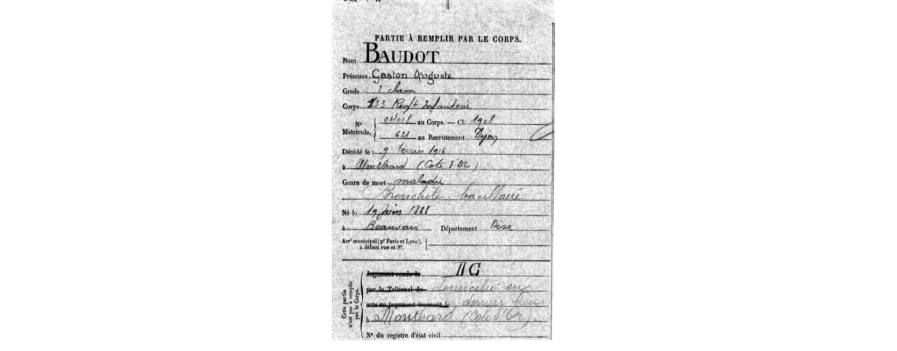 PARTIE À REMPLIR PAR LE CORPS.
Nom BAUDOT
Prénoms Gaston Auguste
Grade 2e classe
Corps 133 Regt Infanterie
N° Matricule. au Corps. — Cl. 1908
621 au Recrutement Dijon
Décédé le 9 février 1916
à Montbard (Cote d'Or)
Genre de mort maladie
Bronchite bacillaire
Né le 19 juin 1888
à Beauvais Département Oise
Arrt municipal (pr Paris et Lyon), à défaut rue et N°.
Cette partie n'est pas à remplir par le Corps.
Jugement rendu le
par le Tribunal de domicilié en
acte ou jugement transcrit le dernier lieu
à Montbard (Cote d'Or).
N° du registre d'état civil